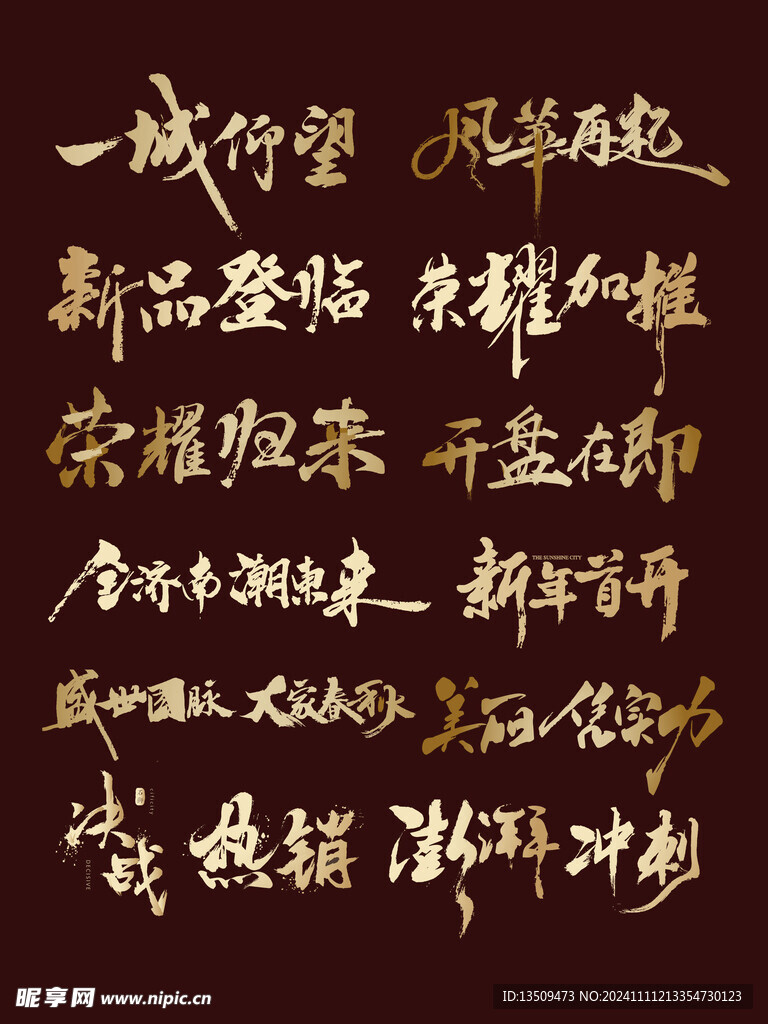 一城仰望
风華再起
新品登临
荣耀加推
荣耀归来
开盘在即
全济南潮東来
THE SUNSHINE CITY
新年首开
盛世国脉 大家春秋
美丽凭实力
决战
DECISIVE
热销
澎湃
冲刺
昵享网 www.nipic.cn
ID:13509473 NO:20241111213354730123